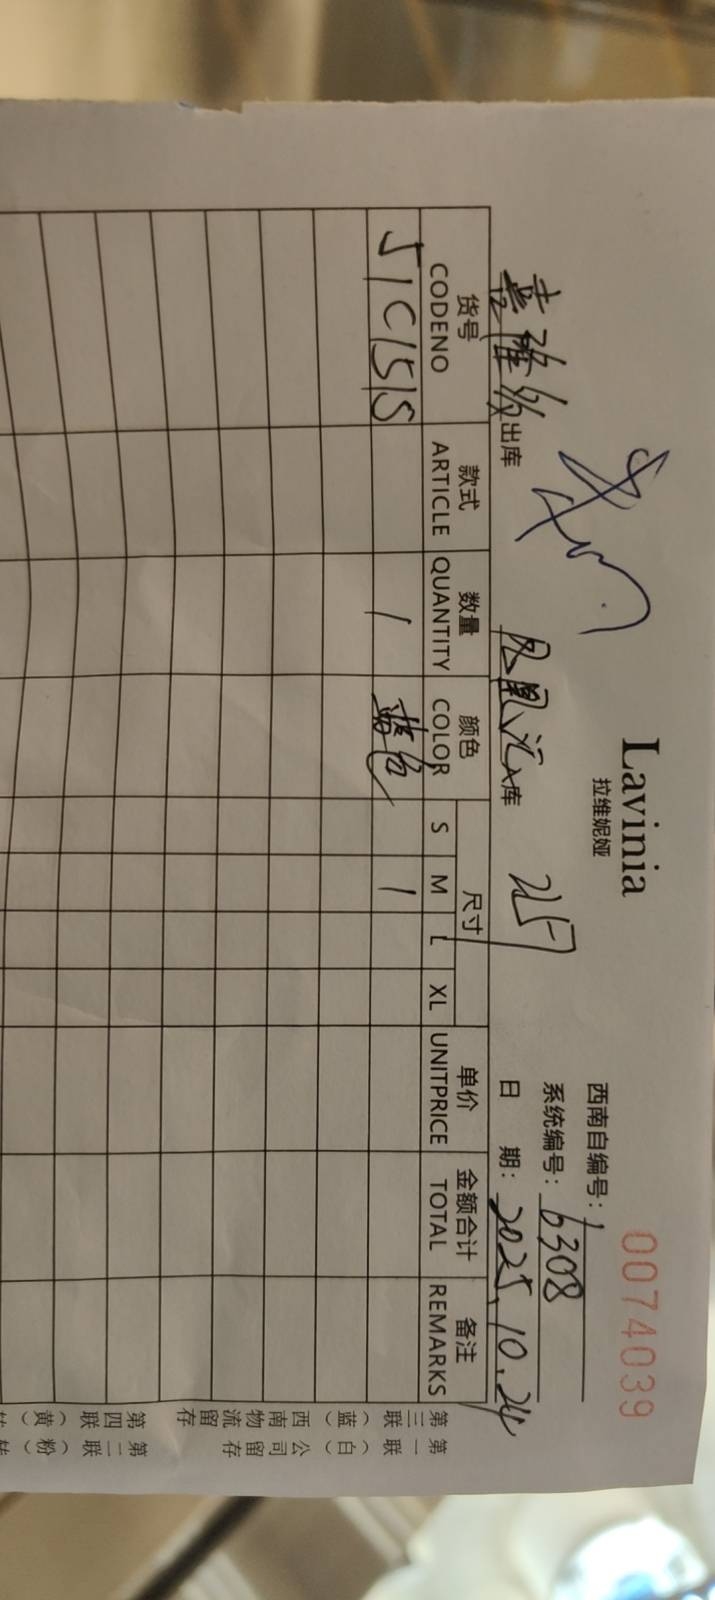 Lavinia
拉维妮娅
0074039
西南自编号:
系统编号: 6308
出库 凤凰汇入库
日 期: 2025.10.24
货号 款式 数量 颜色 尺寸 单价 金额合计 备注
CODENO ARTICLE QUANTITY COLOR S M L XL UNITPRICE TOTAL REMARKS
J1C1515 1 蓝色 1
第一联(白)公司留存
第三联(蓝)西南物流留存
第二联(粉)
第四联(黄)